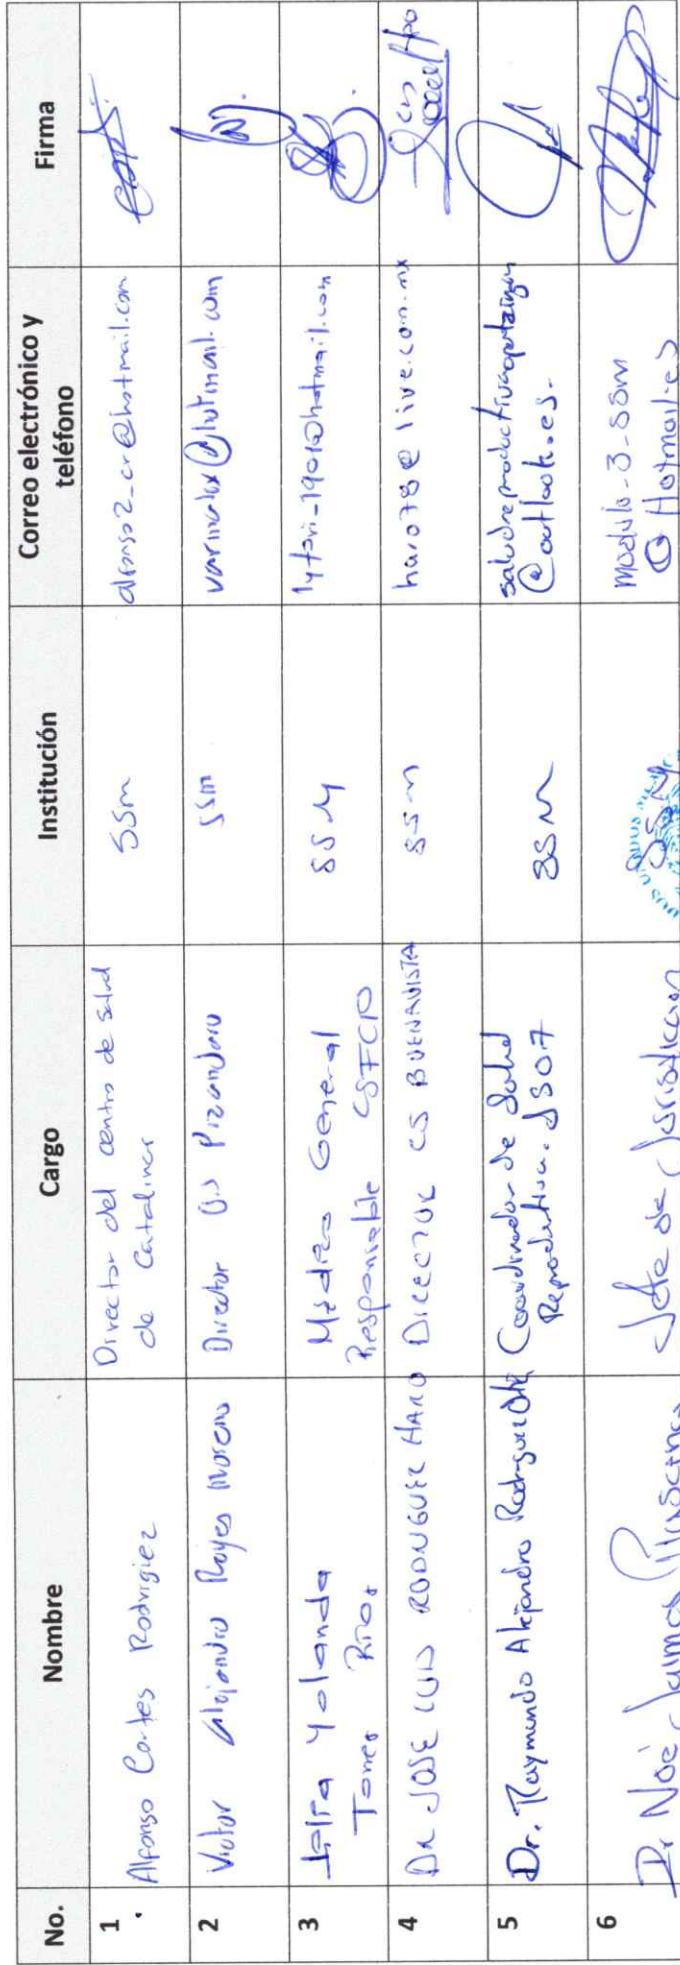 No.
Nombre
Cargo
Institución
Correo electrónico y
teléfono
Firma
1
Alfonso Cortes Rodrigiez
Director del centro de salud
de Catalinas
SSm
alfonso2_cr@hotmail.com
2
Victor Alejandro Reyes Moreno
Director C.S Pizandaro
SSm
@hotmail.com
3
Yolanda
Torres Rios
Médico General
Responsable
SSM
@hotmail.com
4
DR JOSE LUIS RODRIGUEZ HARO
DIRECTOR CS BUENAVISTA
SSM
haro78@live.com.mx
5
Dr. Raymundo Alejandro Rodriguez
Coordinador de Salud
Reproductiva. JS07
SSM
@outlook.es.
6
Dr Noé Jaimes
Jefe de Jurisdiccion
SSM
modulo-3-SSm
@Hotmail.es